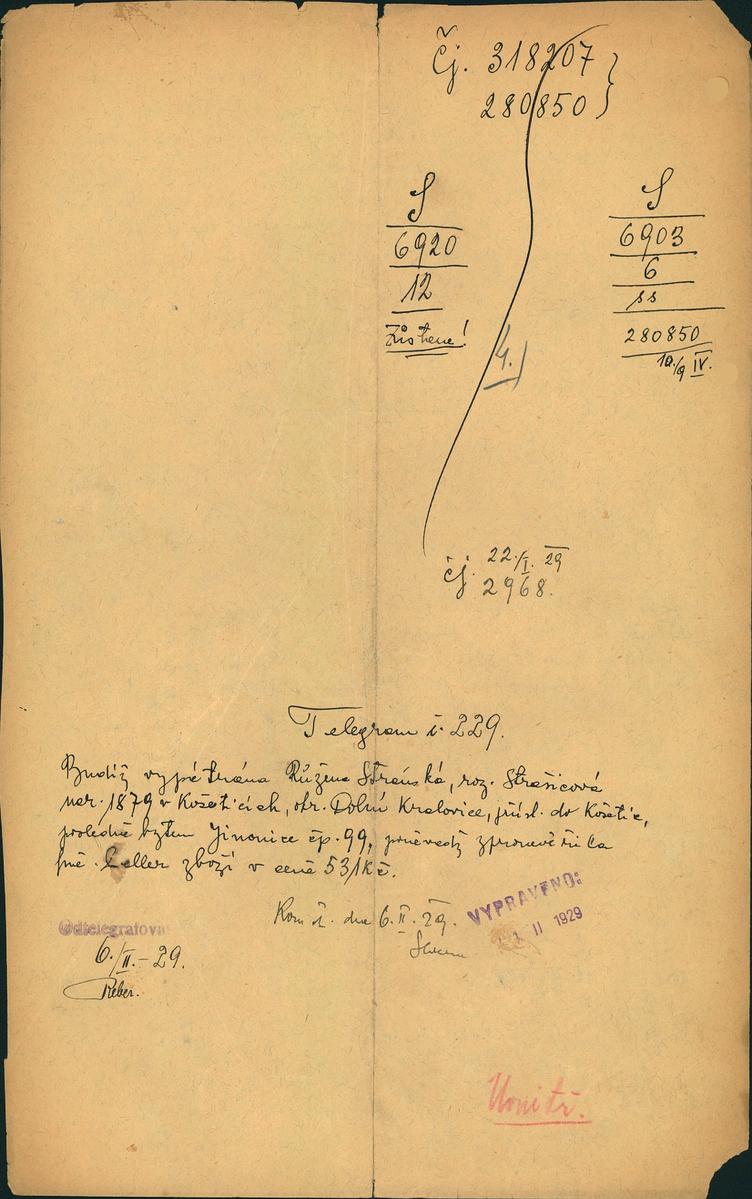 Čj. 318207
280850
S
6920
12
Zjištěne!
S
6903
6
ss
280850
10./9 IV.
4.
22./I. 29
čj. 2968.
Telegram č. 229.
Budiž vypátrána Růžena Stránská, roz. Strašicová
nar. 1879 v Košeticích, okr. Dolní Kralovice, přísl. do Košetic,
posledně bytem Jinonice čp. 99, poněvadž zpronevěřila
fmě. Celler zboží v ceně 531 Kč.
Kom. st. dne 6. II. 29.
VYPRAVENO:
11 II 1929
Odtelegrafová
6./II. - 29.
Reber.
Vnitř.